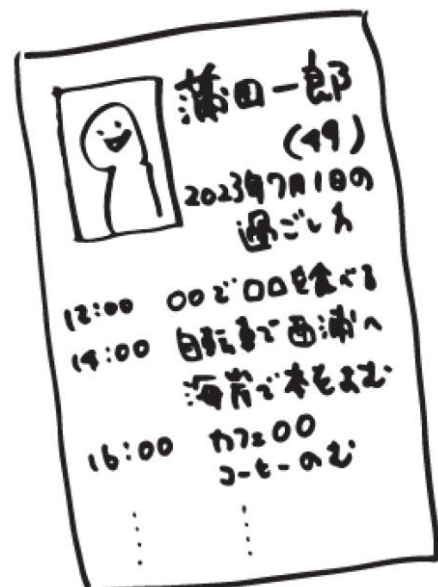 蒲田一郎
(49)
2023年7月1日の
過ごし方
12:00 〇〇で〇〇を食べる
14:00 自転車で西浦へ
海岸で本をよむ
16:00 カフェ〇〇
コーヒーのむ